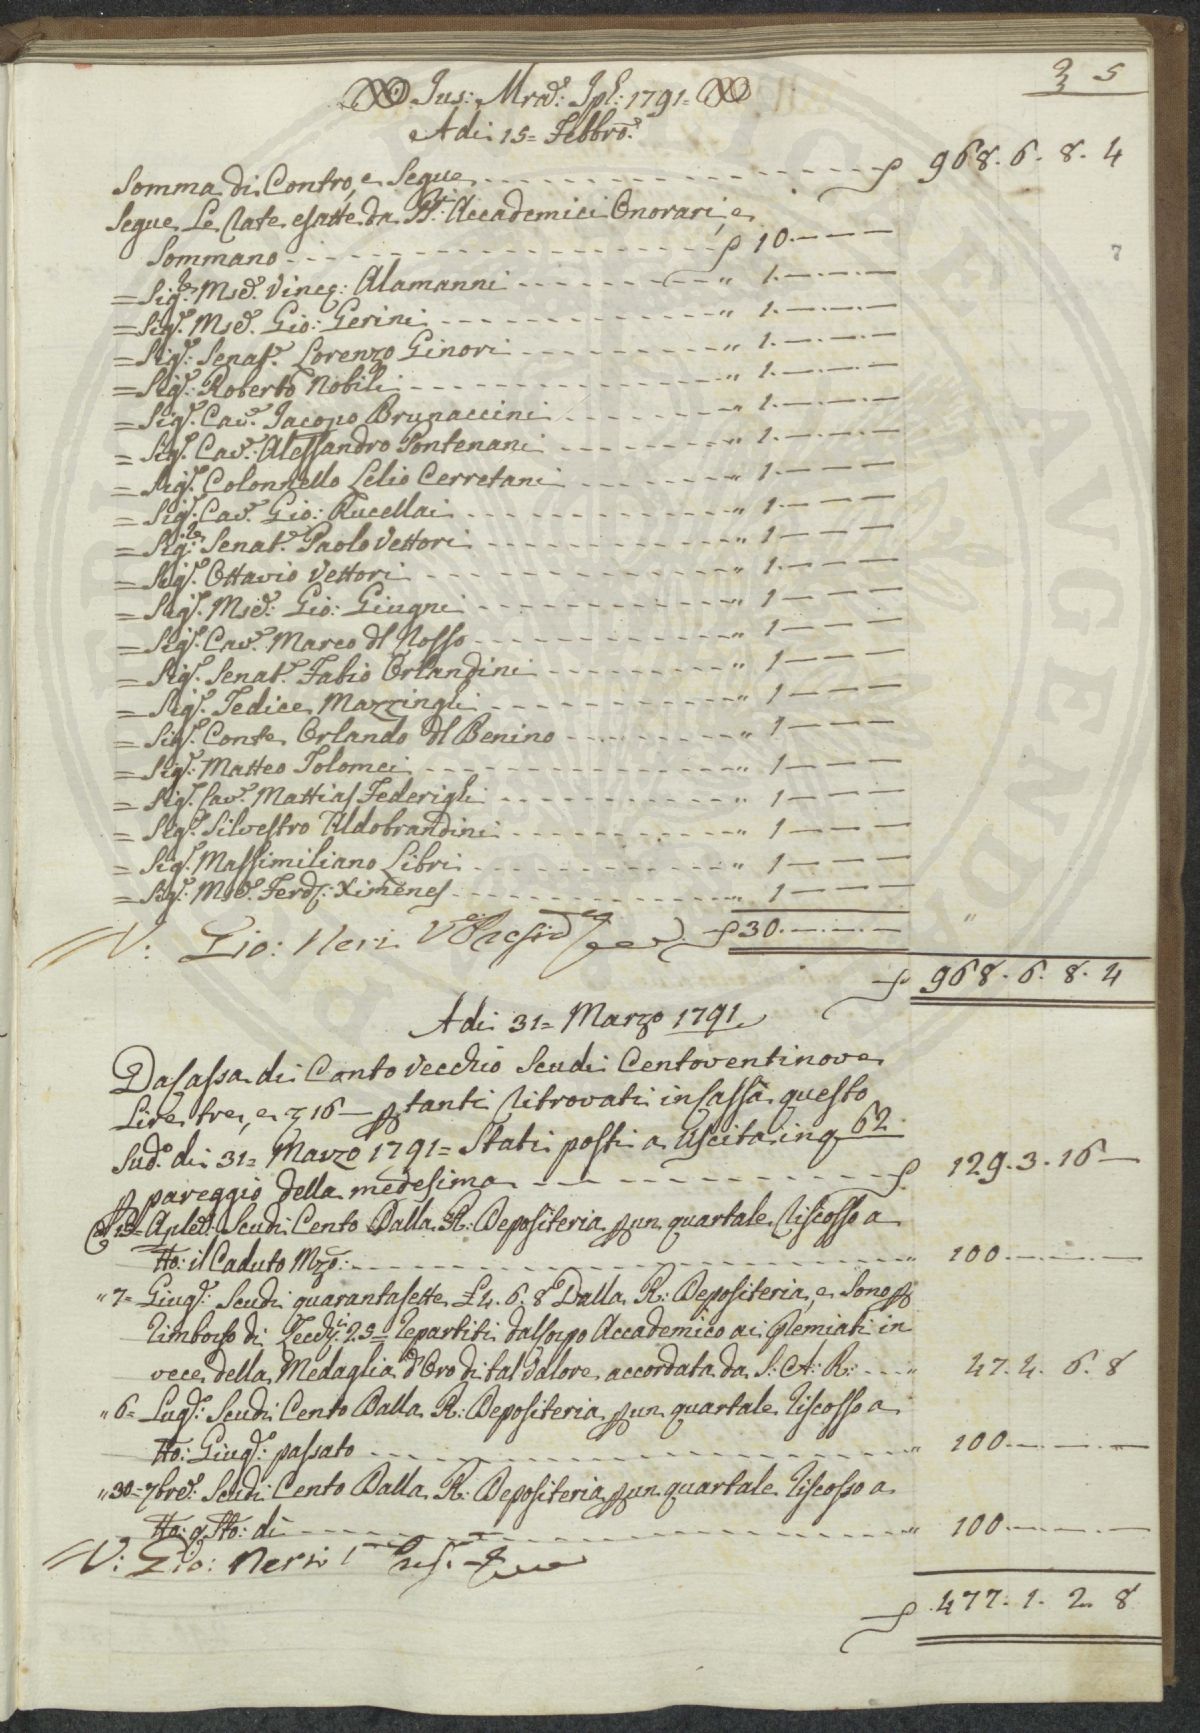 35
Jus: Mrd: Ipl: 1791=
Adi 15= Febbro:
Somma di Contro, e Segue - - - ƒ 968. 6. 8. 4
Segue Le Rate esatte da SSri: Accademici Onorari, e
Sommano - - - ƒ 10.— — —
= Sigr. Msē. Vinc: Alamanni - - - " 1.— — —
= Sigr. Msē. Gio: Gerini - - - " 1.— — —
= Sigr. Senatr. Lorenzo Ginori - - - " 1.— — —
= Sigr. Roberto Nobili - - - " 1.— — —
= Sigr. Cavr. Jacopo Brunaccini - - - " 1.— — —
= Sigr. Cavr. Alessandro Pontenani - - - " 1.— — —
= Sigr. Colonnello Lelio Cerretani - - - " 1.— — —
= Sigr. Cavr. Gio: Rucellai - - - " 1— — —
= Sigr. Senatr. Paolo Vettori - - - " 1— — —
= Sigr. Ottavio Vettori - - - " 1.— — —
= Sigr. Msē. Gio: Giugni - - - " 1— — —
= Sigr. Cavr. Marco dl Rosso - - - " 1— — —
= Sigr. Senatr. Fabio Orlandini - - - " 1— — —
= Sigr. Tedice Mazzinghi - - - " 1— — —
= Sigr. Conte Orlando dl Benino - - - " 1— — —
= Sigr. Matteo Tolomei - - - " 1— — —
= Sigr. Cavr. Mattias Federighi - - - " 1— — —
= Sigr. Silvestro Aldobrandini - - - " 1— — —
= Sigr. Massimiliano Libri - - - " 1— — —
= Sigr. Msē. Ferdo: Ximenes - - - " 1— — —
V: Gio: Neri V Presid ƒ 30.— — — "
ƒ 968. 6. 8. 4
Adi 31= Marzo 1791
Da Cassa di Conto Vecchio Scudi Centoventinove
Lire tre, e ʒ 16— p tanti ritrovati in Cassa questo
Sudo. di 31= Marzo 1791= Stati posti a Uscita in q 62
p pareggio della medesima - - - ƒ 129. 3. 16 —
Aple: Scudi Cento Dalla R: Depositeria p un quartale riscosso a
tto: il Caduto Mzo: - - - " 100 — — —
" 7= Giugo: Scudi quarantasette £ 4. 6. 8 Dalla R: Depositeria, e Sono p
rimborso di Zecchi: 25= repartiti dal Corpo Accademico ai premiati in
vece della Medaglia d'Oro di tal valore accordata da S: A: R: - - - " 47. 4. 6. 8
" 6= Lugo: Scudi Cento Dalla R: Depositeria p un quartale riscosso a
tto: Giugo: passato - - - " 100 — — —
" 30= 7bre: Scudi Cento Dalla R: Depositeria p un quartale riscosso a
tto: q Sto: di - - - " 100 — — —
V: Gio: Neri
ƒ 477. 1. 2. 8